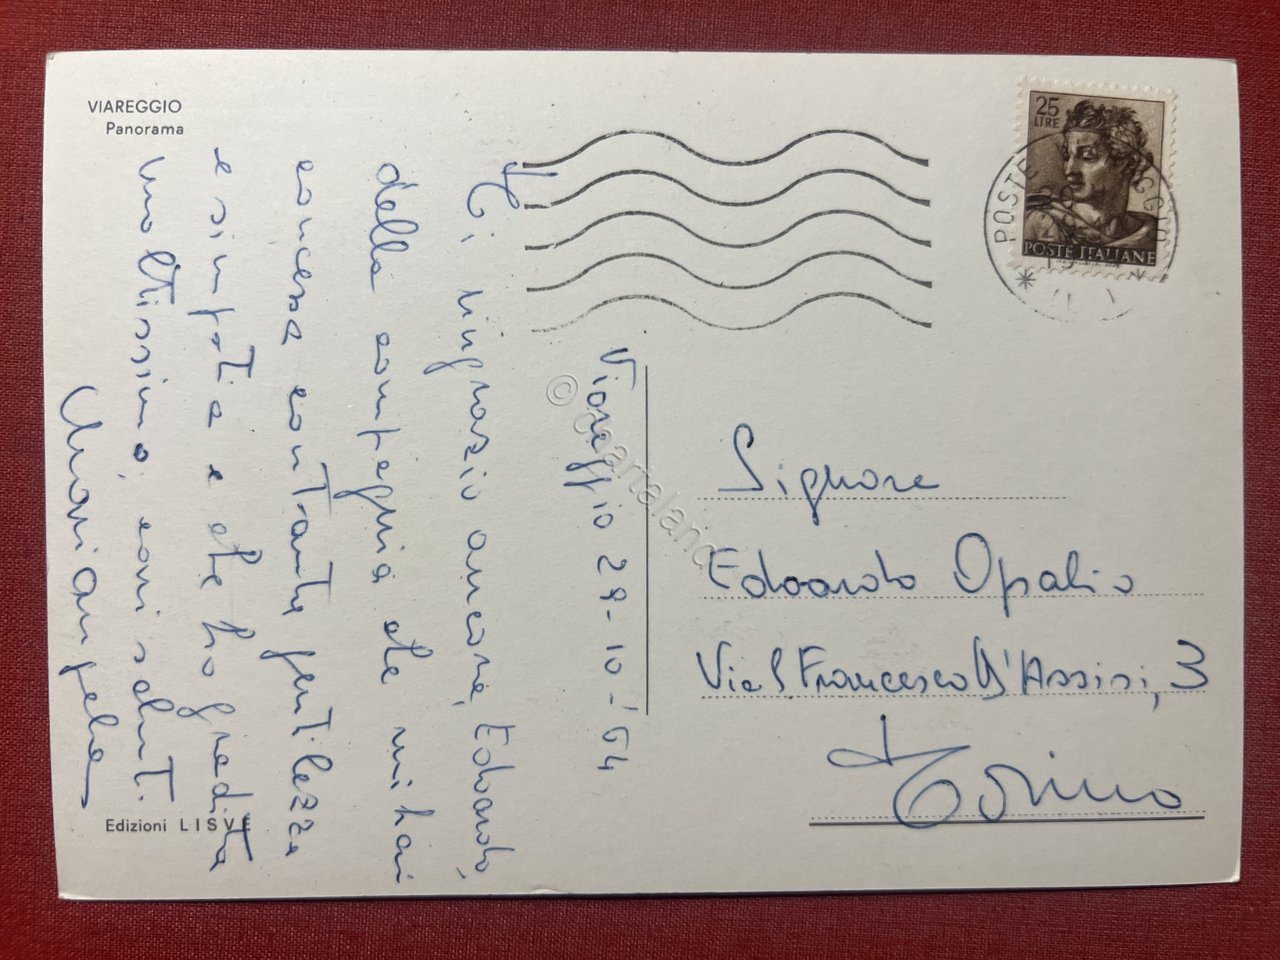 VIAREGGIO
Panorama
25
LIRE
POSTE ITALIANE
POSTE
Viareggio 29-10-'64
Ti ringrazio ancora, Edoardo,
della compagnia che mi hai
concessa con tanta gentilezza
e simpatia e che ho gradita
moltissimo, cari saluti.
Mariangela
Signore
Edoardo Opalio
Via S. Francesco D'Assisi, 3
Torino
Edizioni LISVE
© cartaland